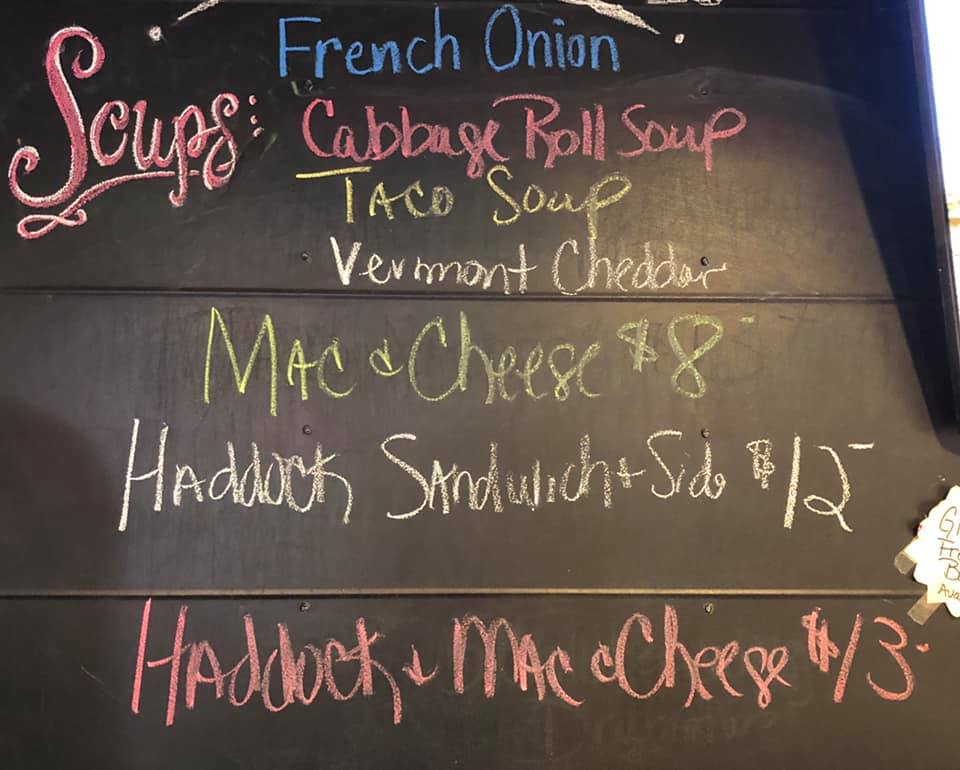 Soups:
French Onion
Cabbage Roll Soup
Taco Soup
Vermont Cheddar
Mac & Cheese $8-
Haddock Sandwich + Side $12-
Haddock & Mac & Cheese $13-